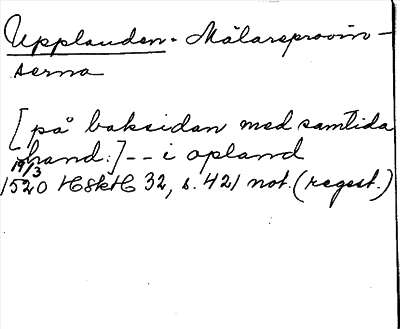 Upplanden - Mälareprovin-
serna
[på baksidan med samtida
hand:] -- i opland
19/3
1520 HSkH 32, s. 421 not. (regest.)